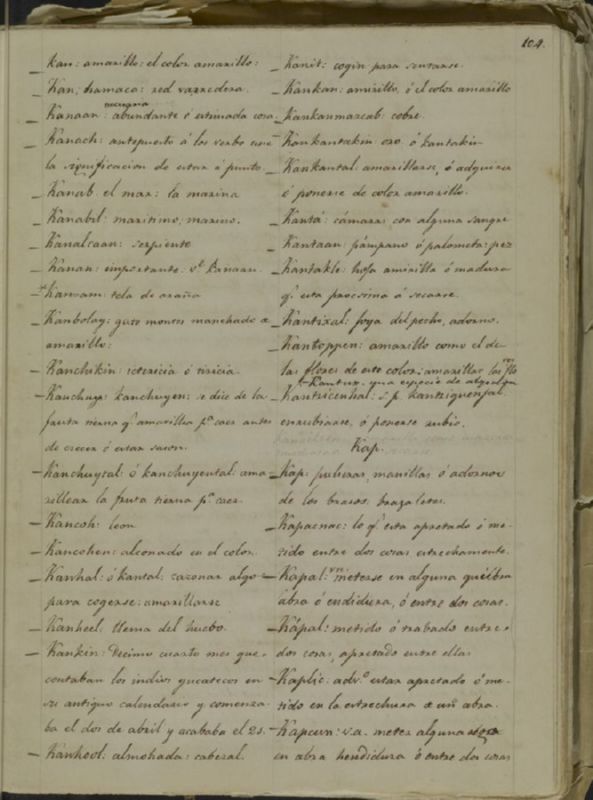 104.
Kan: amarillo: el color amarillo:
Kan; hamaca: red varredera.
necesaria
Kanaan: abundante ó estimada cosa
Kanach: antepuesto á los verbos une
la significacion de estar á punto.
Kanab el mar: la marina
Kanabil: maritimo, marino.
Kanalcaan: serpiente
Kanan: importante. vᵗ Kanaan.
Kanvam: tela de araña
Kanbolay: gato montes manchado de
amarillo:
Kanchikin: ictericia ó tiricia.
Kanchuy: kanchuyen: se dice de la
fruta tierna q.ᵉ amarillea pᵃ caer antes
de crecer ó estar sazon.
Kanchuytal: ó kanchuyental: ama
rillear la fruta tierna pᵃ caer.
Kancoh: leon
Kancohen: aleonado en el color.
Kanhal: ó kantal: sazonar algo
para cogerse: amarillarse
Kanheel: llema del huebo.
Kankin: Decimo cuarto mes que
contaban los indios yucatecos en
su antiguo calendario y comenza
ba el dos de abril y acababa el 25.
Kanhool: almohada: cabezal.
Kanit: cogin para sentarse.
Kankan: amarillo, ó el color amarillo
Kankanmazcab: cobre.
Kankantakin oro. ó kantakin
Kankantal. amarillarse, ó adquirir
é ponerse de color amarillo.
Kanta: cámaras con alguna sangre
Kantaan: pámpano ó palometa: pez
Kantakle: hoja amarilla ó madura
q.ᵉ esta procsima á secarse.
Kantixal: joya del pecho, adorno.
Kantoppen: amarillo como el de
las flores de este color: amarillas las flo
res
Kantux. una especie de
Kantzicenhal: s.p. kantziquenjal.
enrubiarse, ó ponerse rubio.
Kap.
Kap. pulseras, manillas ó adornos
de los brazos: brazaletes.
Kapacnac: lo q.ᵉ esta apretado ó me-
tido entre dos cosas estrechamente.
Kapal: vn. meterse en alguna quiebra
abra ó endidura, ó entre dos cosas.
Kápal: metido ó trabado entre
dos cosas, apretado entre ellas
Kaplic: adv.º estar apretado ó me-
tido en la estrechura de un abra.
Kapcun: v.a. meter alguna
en abra hendidura ó entre dos cosas